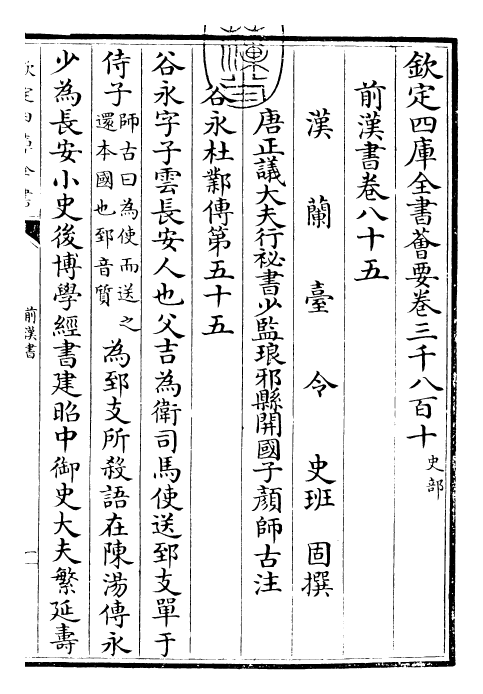 欽定四庫全書薈要卷三千八百十 史部
前漢書卷八十五
漢蘭臺令史班固撰
唐正議大夫行祕書少監琅邪縣開國子顏師古注
谷永杜鄴傳第五十五
谷永字子雲長安人也父吉為衛司馬使送郅支單于
侍子師古曰為使而送之還本國也郅音質為郅支所殺語在陳湯傳永
少為長安小史後博學經書建昭中御史大夫繁延壽
欽定四庫全書
前漢書
一